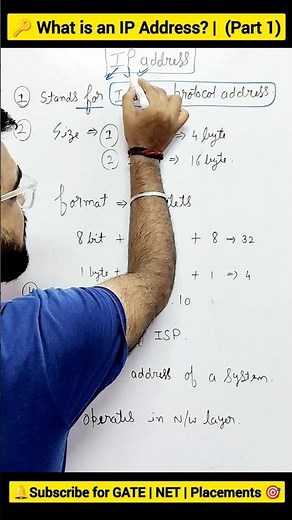 🔑 What is an IP Address? | (Part 1)
IP address
① Stands for protocol address
② Size ⇒ ① ⇒ 4 byte
② ⇒ 16 byte.
format ⇒
8 bit + + 8 ⇒ 32
1 byte + + 1 ⇒ 4
. 10
ISP.
address of a System.
operates in N/w layer.
🔔Subscribe for GATE | NET | Placements 🎯